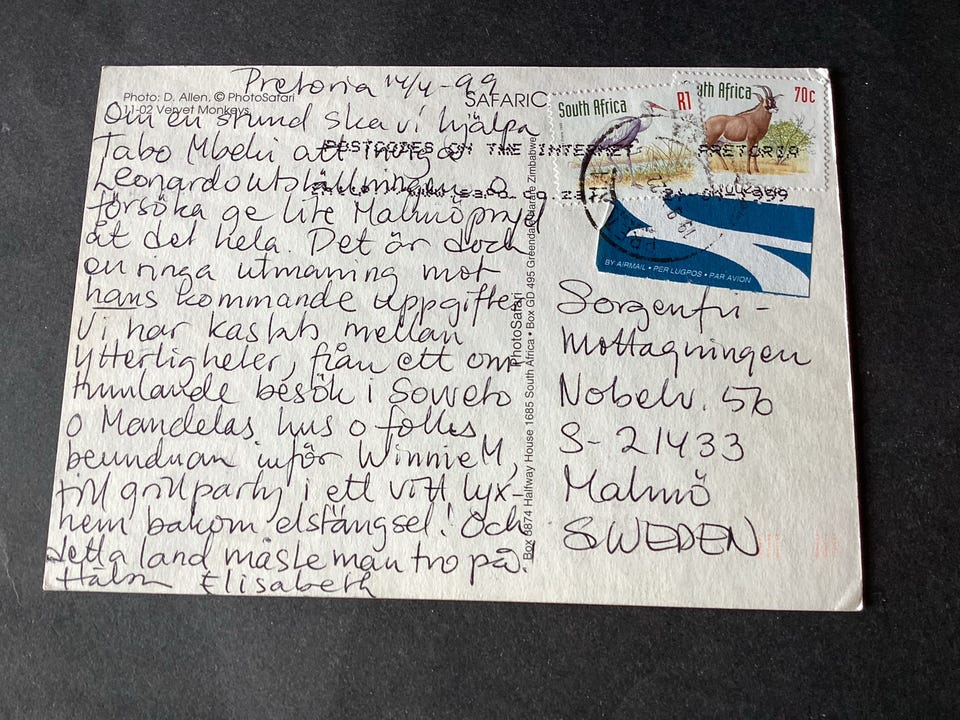 Pretoria 14/4-99
Photo: D. Allen, © PhotoSafari
11-02 Vervet Monkeys
SAFARIC
Om en stund ska vi hjälpa
Tabo Mbeki att inviga
Leonardoutställningen o
försöka ge lite Malmöprägel
åt det hela. Det är dock
en ringa utmaning mot
hans kommande uppgifter.
Vi har kastats mellan
ytterligheter, från ett om
tumlande besök i Soweto
o Mandelas hus o folks
beundran inför Winnie M,
till grillparty i ett vitt lyx-
hem bakom elstängsel! Och
detta land måste man tro på.
Hälsn Elisabeth
PhotoSafari
Box 8874 Halfway House 1685 South Africa • Box GD 495 Greendale Harare Zimbabwe
South Africa R1
South Africa 70c
POSTCODES ON THE INTERNET
PRETORIA
1999
BY AIRMAIL • PER LUGPOS • PAR AVION
Sorgenfri-
Mottagningen
Nobelv. 56
S-21433
Malmö
SWEDEN